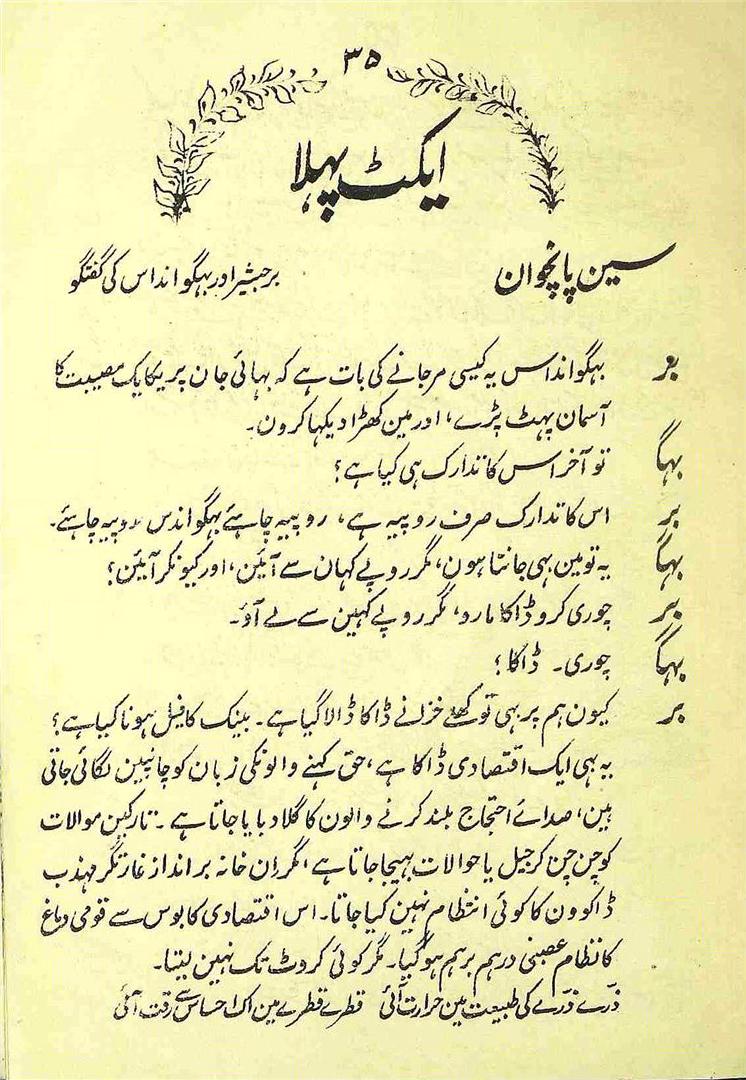 ۳۵
ایکٹ پہلا
سین پانچوان
برجیشر اور بہگوانداس کی گفتگو
بر بہگوانداس یہ کیسی مرجانے کی بات ہے کہ بہائی جان پر یکایک مصیبت کا
آسمان پہٹ پڑے، اور مین کھڑا دیکہا کرون۔
بہگا تو آخر اس کا تدارک ہی کیا ہے؟
بر اس کا تدارک صرف روپیہ ہے، روپیہ چاہئے بہگواندس روپیہ چاہئے۔
بہگا یہ تو مین بہی جانتا ہون، مگر روپے کہان سے آئین، اور کیونکر آئین؟
بر چوری کرو ڈاکا مارو، مگر روپے کہین سے لے آؤ۔
بہگا چوری۔ ڈاکا؟
بر کیون ہم پر بہی تو کھلے خزانے ڈاکا ڈالا گیا ہے۔ بینک کا فیل ہونا کیا ہے؟
یہ بہی ایک اقتصادی ڈاکا ہے، حق کہنے والونکی زبان کو چانپین لگائی جاتی
ہین، صدائے احتجاج بلند کرنے والون کا گلا دبایا جاتا ہے۔ تارکین موالات
کو چن چن کر جیل یا حوالات بہیجا جاتا ہے، مگر ان خانہ بر انداز غارتگر مہذب
ڈاکوون کا کوئی انتظام نہین کیا جاتا۔ اس اقتصادی کابوس سے قومی دماغ
کا نظام عصبی درہم برہم ہو گیا۔ مگر کوئی کروٹ تک نہین لیتا۔
ذرّے ذرّے کی طبیعت مین حرارت آئی قطرے قطرے مین اک احساس سے رقت آئی